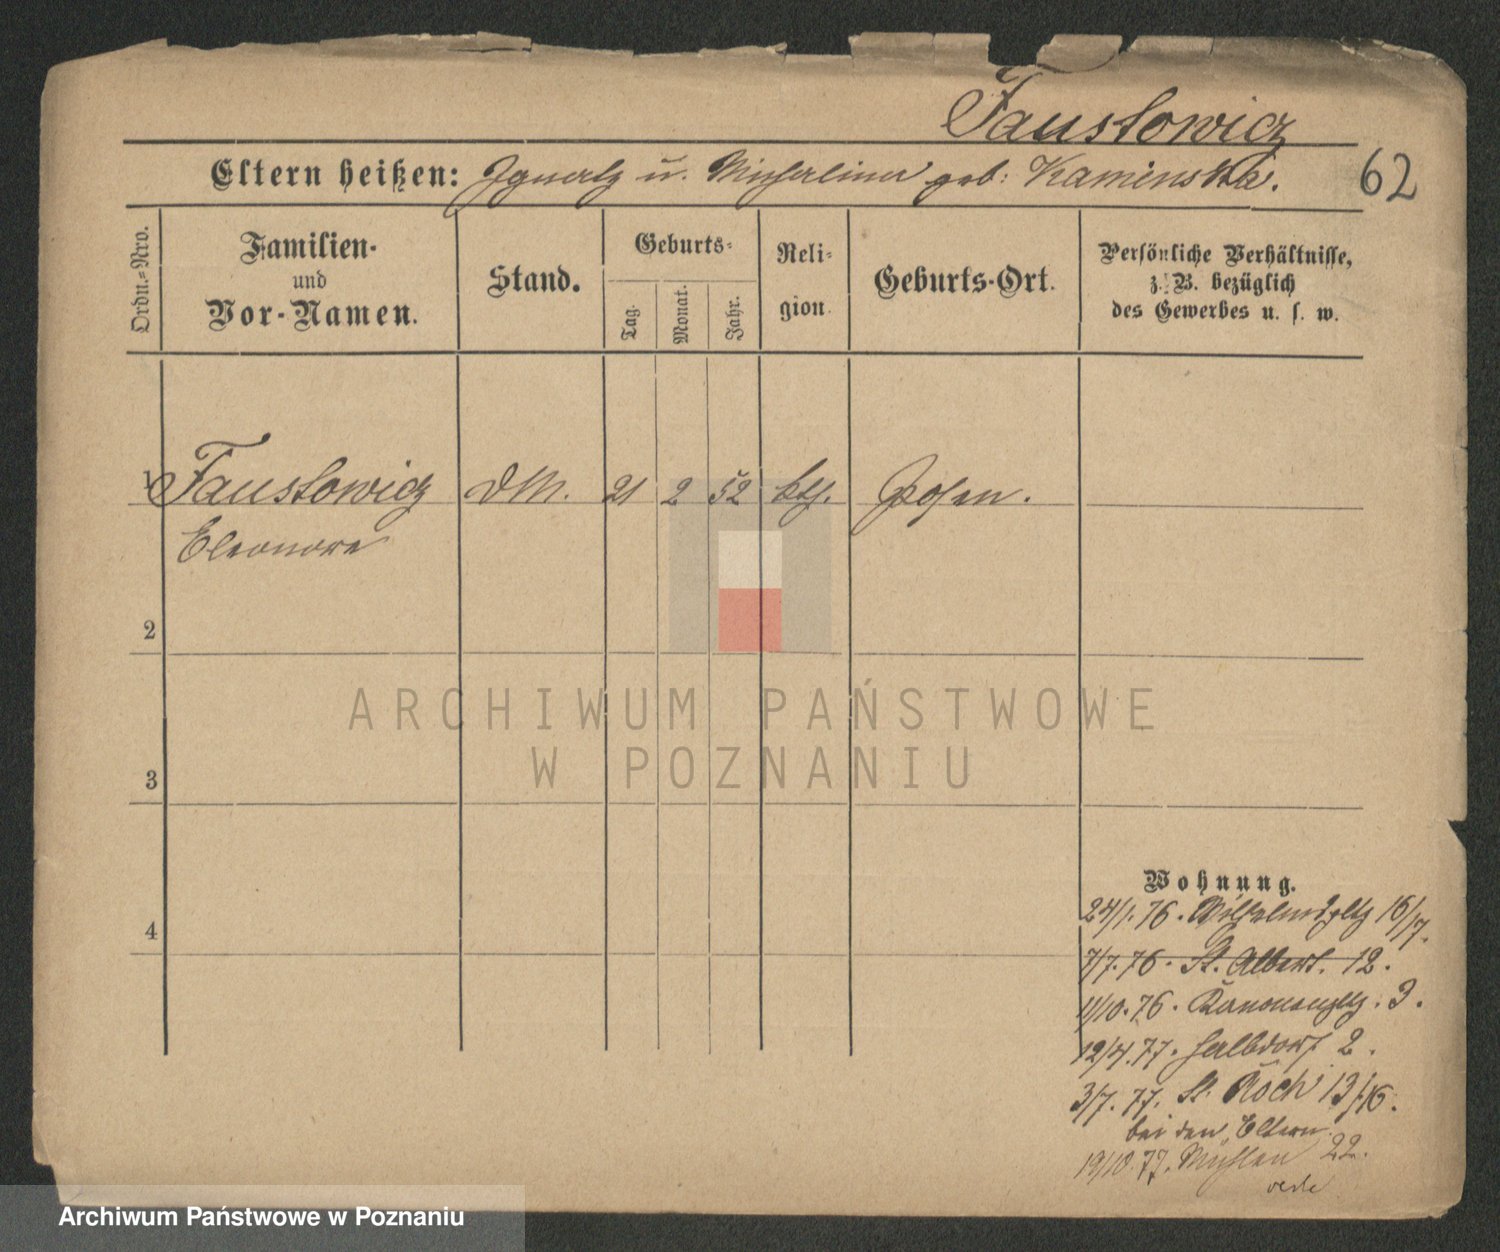 Faustowicz
Eltern heißen: Ignatz u. Michalina geb: Kaminska.
62
Ordn.=Nro.
Familien-
und
Vor-Namen.
Stand.
Geburts-
Tag.
Monat.
Jahr.
Reli-
gion.
Geburts-Ort.
Persönliche Verhältnisse,
z. B. bezüglich
des Gewerbes u. s. w.
1 Faustowicz DM. 21 2 52 kth. Posen.
Eleonore
2
3
4
ARCHIWUM PAŃSTWOWE
W POZNANIU
Wohnung.
24/1. 76. Wilhelmspltz 16/17.
7/7. 76. St. Adalbert. 12.
11/10. 76. Kanonenpltz. 3.
12/4. 77. Halbdorf 2.
3/7. 77. St. Roch 13/16.
bei den Eltern.
19/10. 77. Mühlen 22.
Archiwum Państwowe w Poznaniu